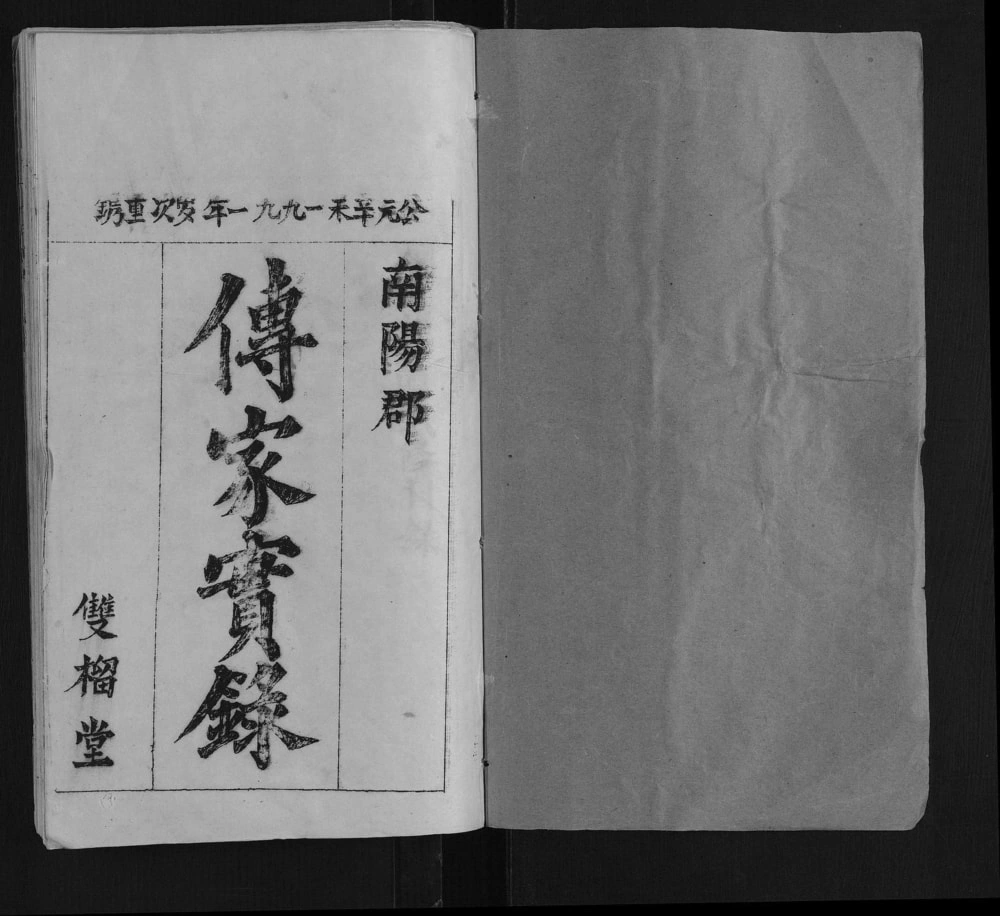 公元辛未一九九一年岁次重
南陽郡
傳家實錄
雙榴堂